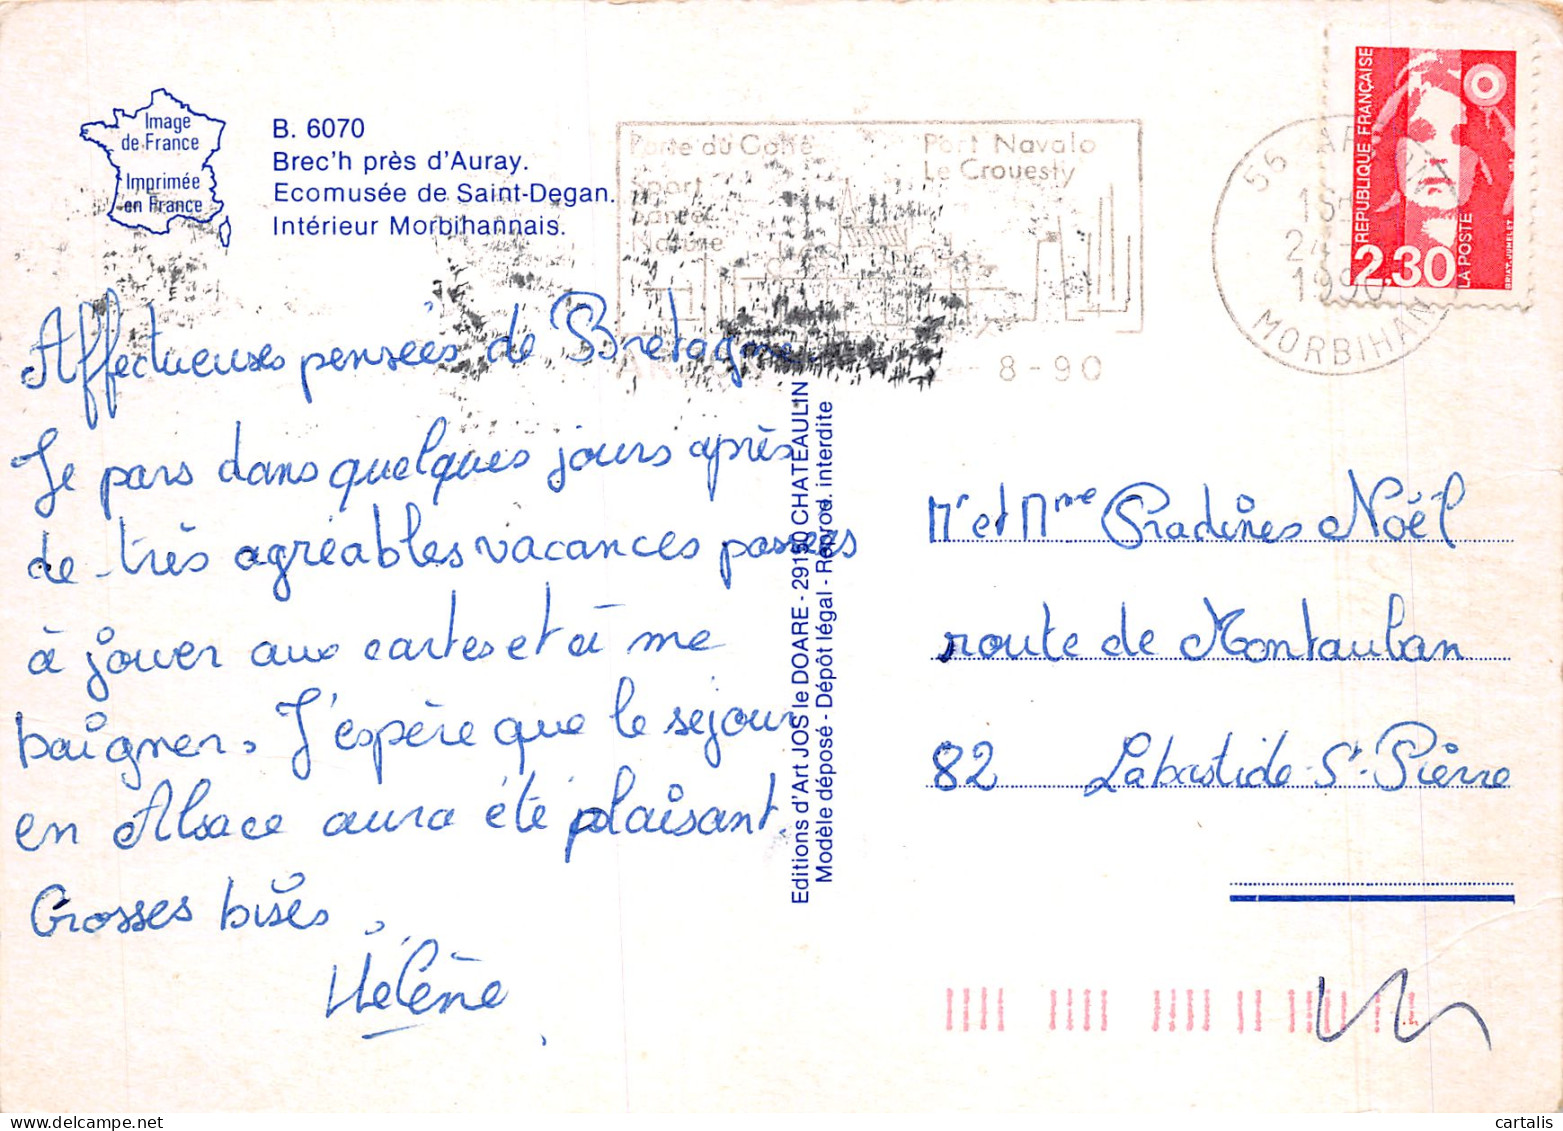 Image
de France
Imprimée
en France
B. 6070
Brec'h près d'Auray.
Ecomusée de Saint-Degan.
Intérieur Morbihannais.
Porte du Golfe
Sport
Nature
Port Navalo
Le Crouesty
8-90
56 AR
24
1990
MORBIHAN
REPUBLIQUE FRANÇAISE
2,30
LA POSTE
BRIAT. JUMELET
Affectueuses pensées de Bretagne.
Je pars dans quelques jours après
de très agréables vacances passées
à jouer aux cartes et à me
baigner. J'espère que le séjour
en Alsace aura été plaisant.
Grosses bises.
Hélène
Editions d'Art JOS le DOARE - 29150 CHATEAULIN
Modèle déposé - Dépôt légal - Reprod. interdite
Mr et Mme Pradines Noël
route de Montauban
82 Labastide-St-Pierre
cartalis